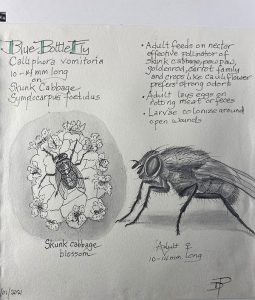 Blue Bottle Fly
Calliphora vomitoria
10-14mm long
on
Skunk Cabbage
Symplocarpus foetidus
• Adult feeds on nectar
effective pollinator of
skunk cabbage, paw paw,
goldenrod, carrot family
and crops like cauliflower
prefers strong odors
• Adult lays eggs on
rotting meat or feces
• Larvae colonize around
open wounds
Skunk cabbage
blossom
Adult ♀
10-14mm long
/01/2021